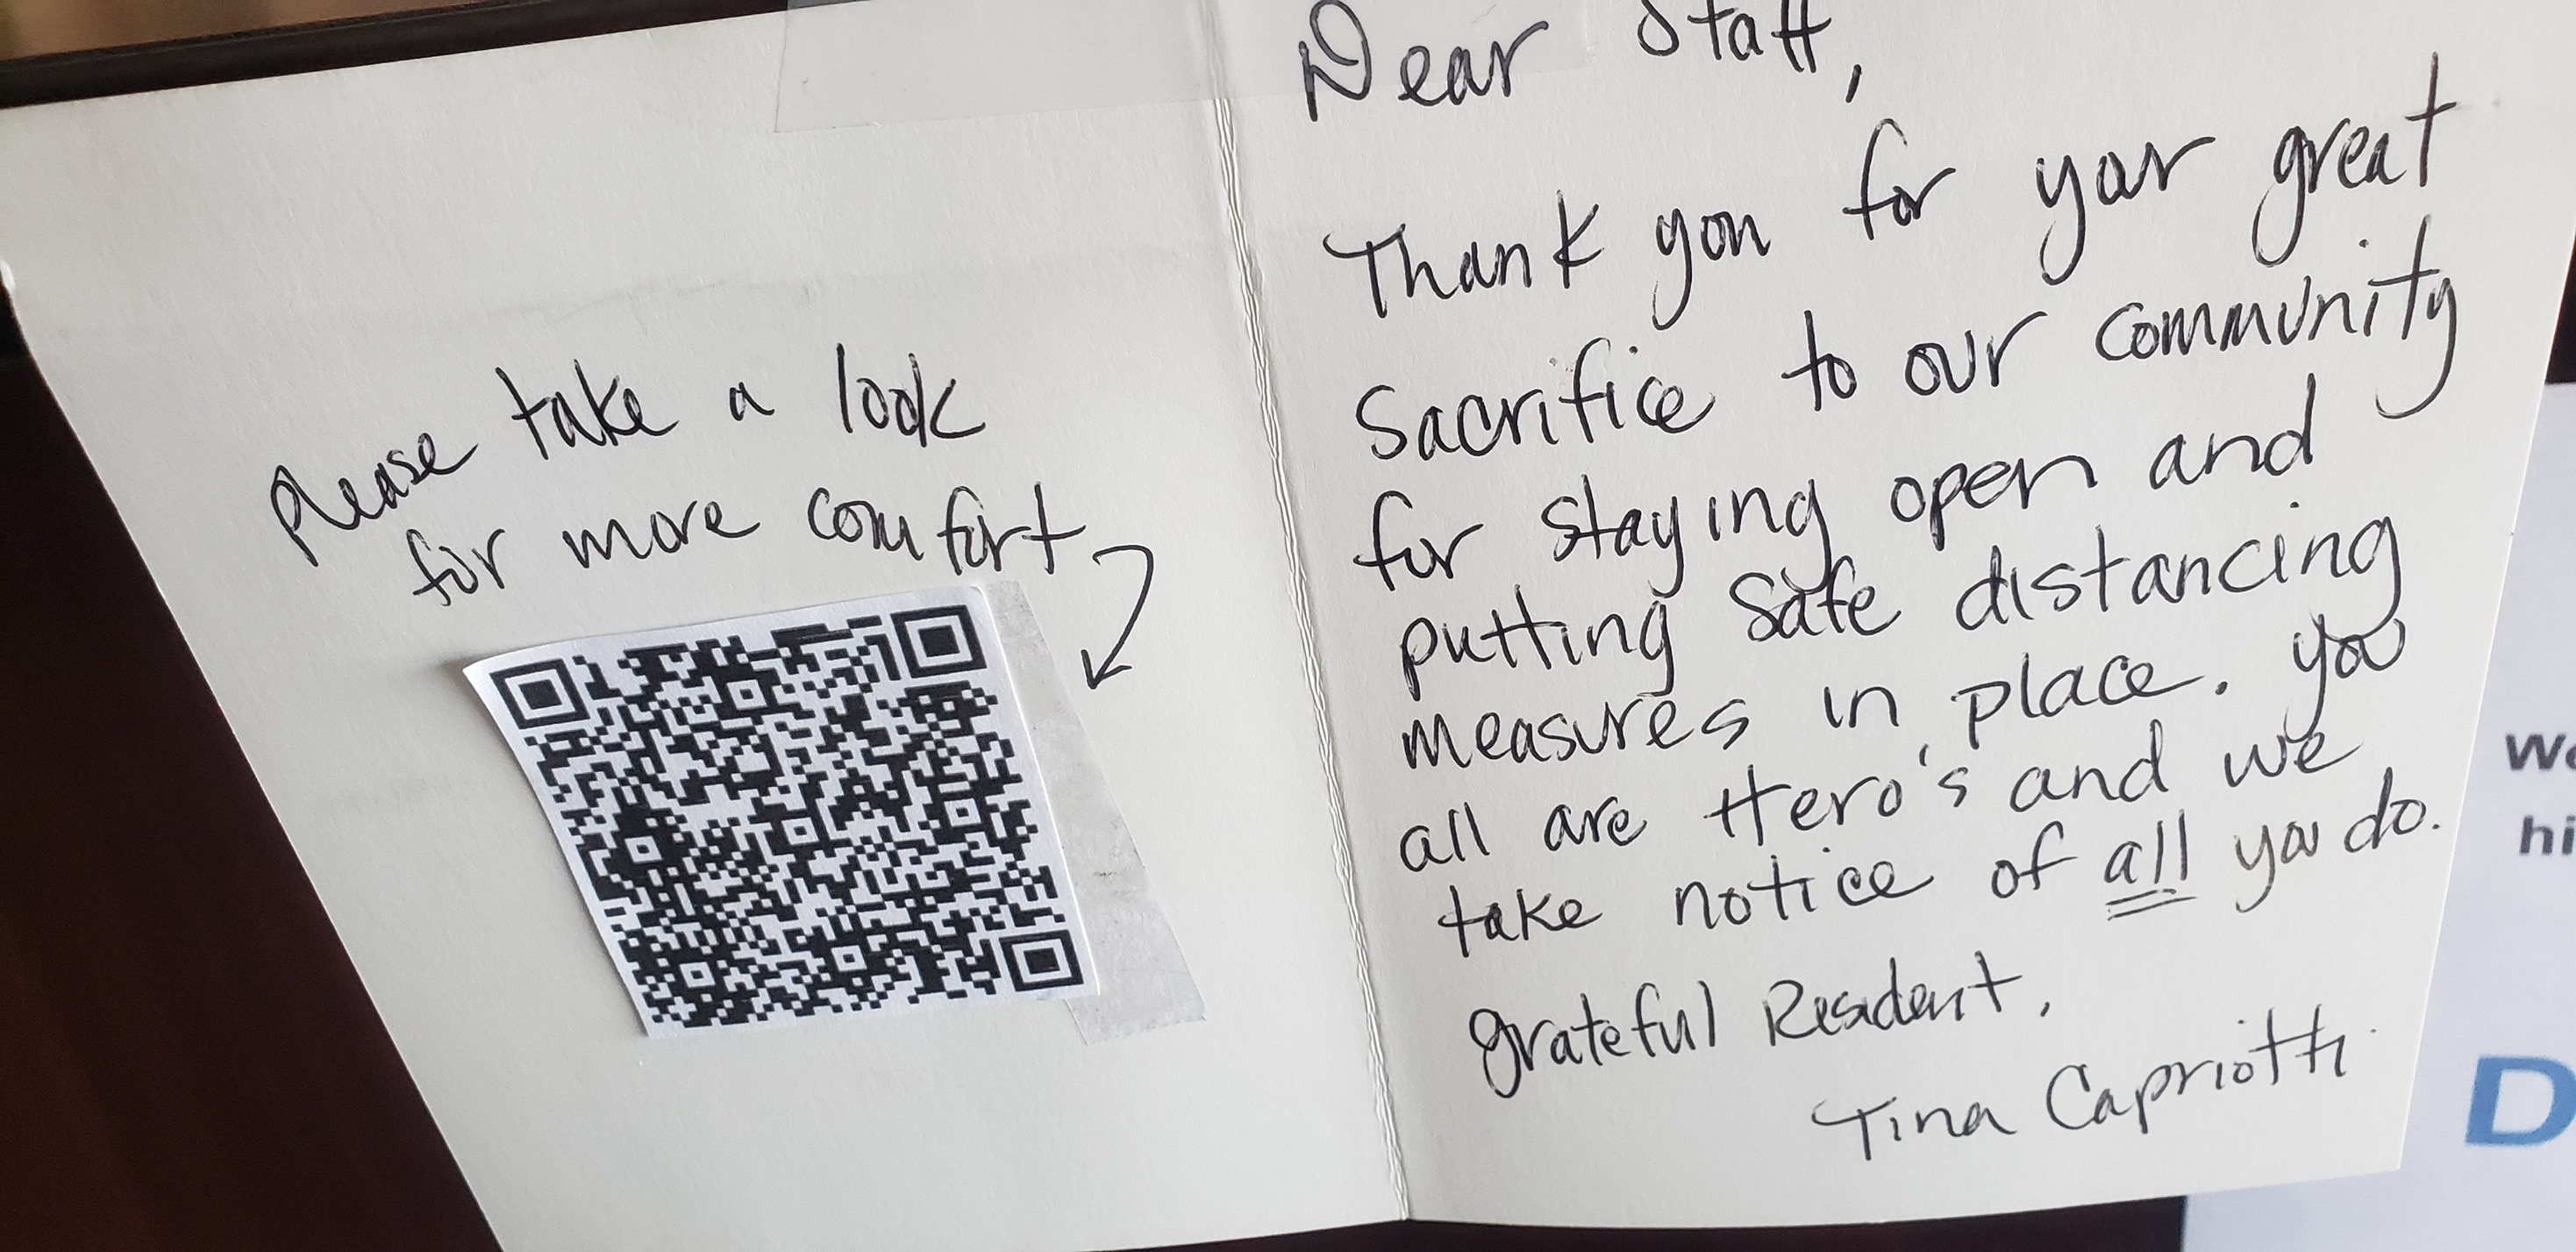 please take a look
for more comfort
Dear Staff,
Thank you for your great
Sacrifice to our community
for staying open and
putting safe distancing
measures in place. You
all are Hero's and we
take notice of all you do.
grateful Resident,
Tina Capriotti
We
hi
D